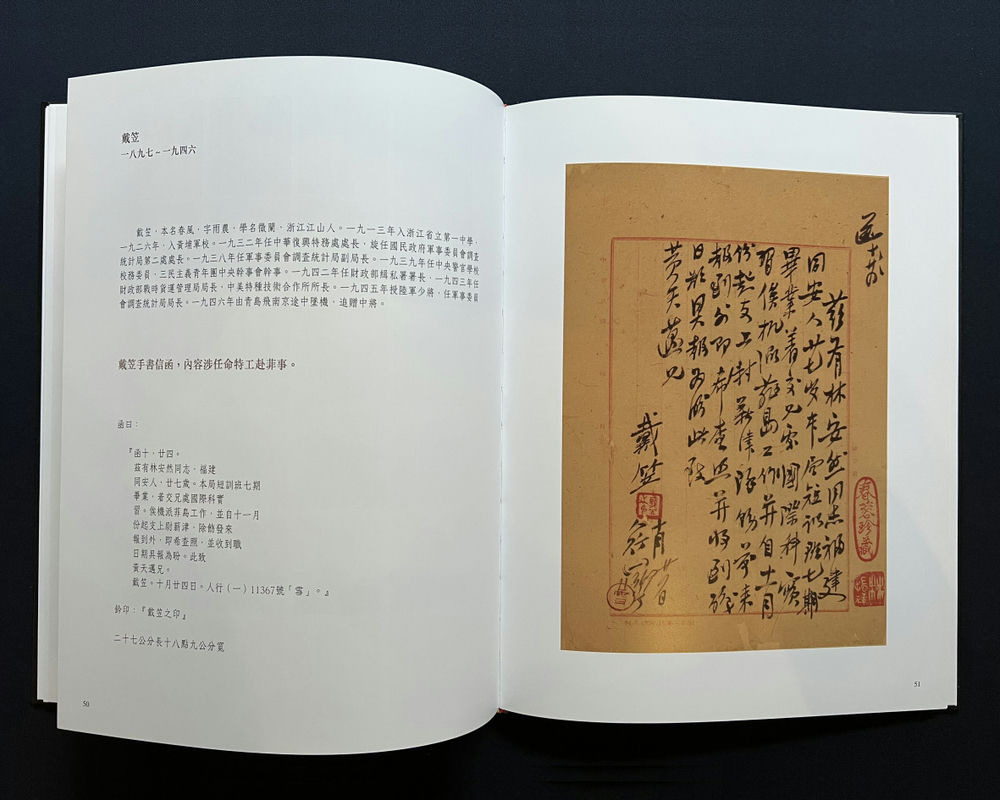 戴笠
一八九七～一九四六
戴笠，本名春風，字雨農，學名徵蘭，浙江江山人。一九一三年入浙江省立第一中學，
一九二六年，入黃埔軍校。一九三二年任中華復興特務處處長，旋任國民政府軍事委員會調查
統計局第二處處長。一九三八年任軍事委員會調查統計局副局長。一九三九年任中央警官學校
校務委員，三民主義青年團中央幹事會幹事。一九四二年任財政部緝私署署長，一九四三年任
財政部戰時貨運管理局局長，中美特種技術合作所所長。一九四五年授陸軍少將，任軍事委員
會調查統計局局長。一九四六年由青島飛南京途中墜機，追贈中將。
戴笠手書信函，內容涉任命特工赴菲事。
函曰：
『函十，廿四。
茲有林安然同志，福建
同安人，廿七歲。本局短訓班七期
畢業，若交兄處國際科實
習。俟機派菲島工作，並自十一月
份起支上尉薪津，除飭發來
報到外，即希查照，並收到職
日期具報為盼。此致
黃天邁兄。
戴笠。十月廿四日。人行（一）11367號「雪」。』
鈐印：『戴笠之印』
二十七公分長十八點九公分寬
50
函十廿四
茲有林安然同志福建
同安人廿七歲本局短訓班七期
畢業著交兄處國際科實
習俟机派菲島工作并自十一月
份起支上尉薪津除飭來
報到外即希查照并將到職
日期具報為盼此致
黃天邁兄
戴笠
十月廿四日
春蓉珍藏
51